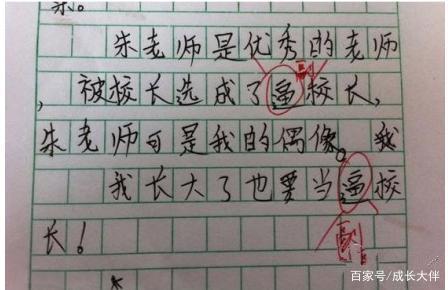 朱老师是优秀的老师
，被校长选成了逼校长，
朱老师可是我的偶像。我
我长大了也要当逼校
长！
副
百家号/成长大伴